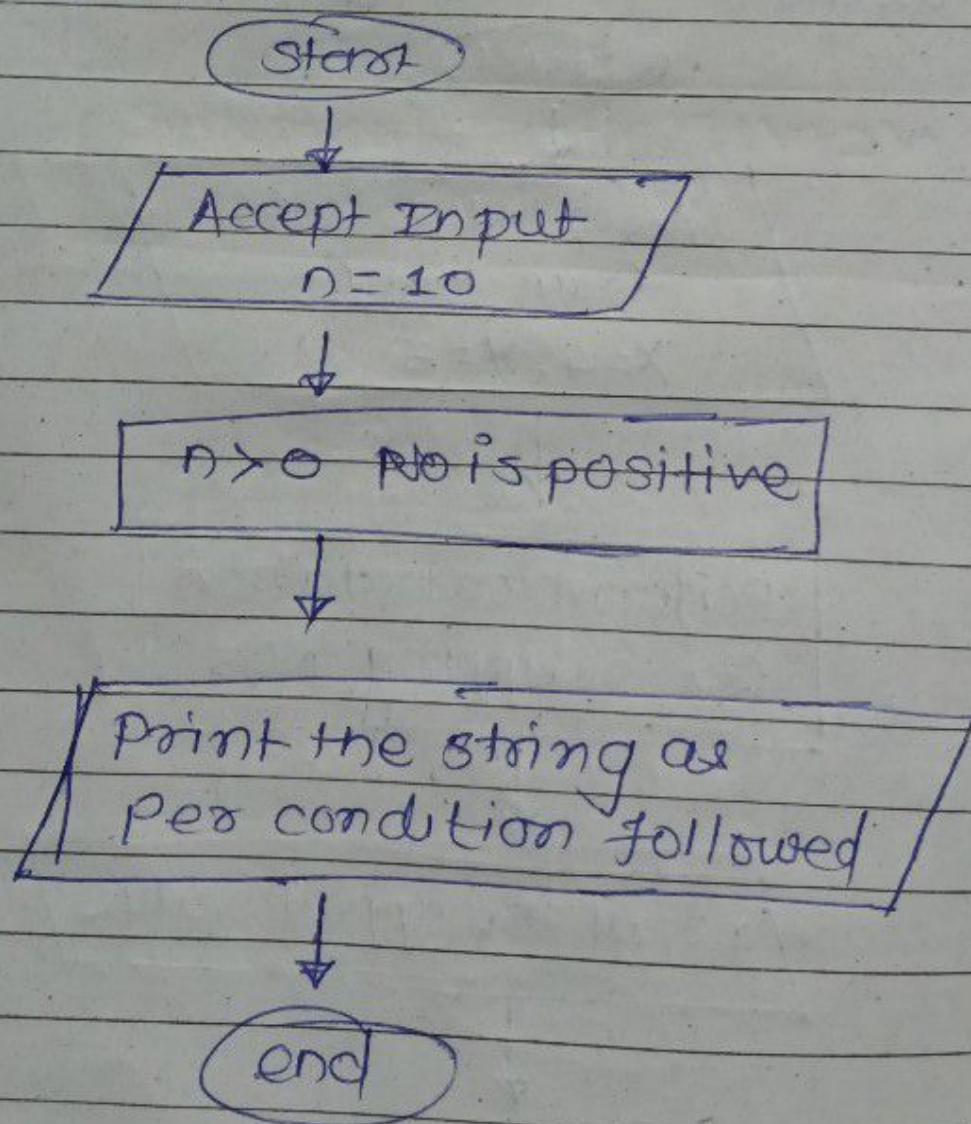 Start
Accept Input
n = 10
n > 0 No is positive
Print the string as
per condition followed
end